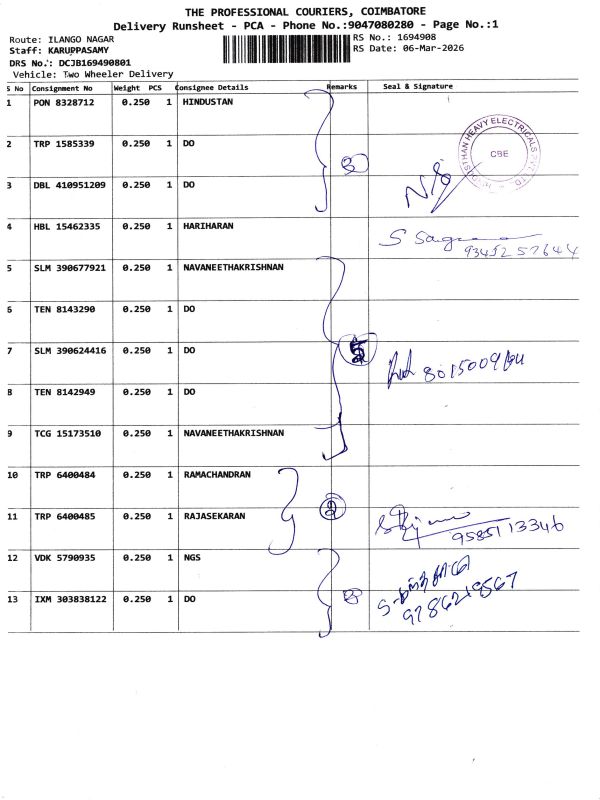 THE PROFESSIONAL COURIERS, COIMBATORE
Delivery Runsheet - PCA - Phone No.:9047080280 - Page No.:1
Route: ILANGO NAGAR
RS No.: 1694908
Staff: KARUPPASAMY
RS Date: 06-Mar-2026
DRS No.: DCJB169490801
Vehicle: Two Wheeler Delivery
S No Consignment No Weight PCS Consignee Details Remarks Seal & Signature
1 PON 8328712 0.250 1 HINDUSTAN
2 TRP 1585339 0.250 1 DO
3 DBL 410951209 0.250 1 DO
3
CBE
4 HBL 15462335 0.250 1 HARIHARAN
9345257644
5 SLM 390677921 0.250 1 NAVANEETHAKRISHNAN
6 TEN 8143290 0.250 1 DO
7 SLM 390624416 0.250 1 DO
5
8 TEN 8142949 0.250 1 DO
9 TCG 15173510 0.250 1 NAVANEETHAKRISHNAN
10 TRP 6400484 0.250 1 RAMACHANDRAN
2
11 TRP 6400485 0.250 1 RAJASEKARAN
9585113346
12 VDK 5790935 0.250 1 NGS
13 IXM 303838122 0.250 1 DO